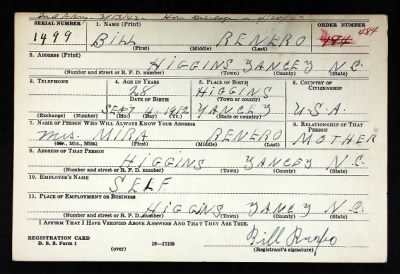 SERIAL NUMBER 1. Name (Print) ORDER NUMBER
1499 BILL RENFRO 484 484
(First) (Middle) (Last)
2. Address (Print)
HIGGINS YANCEY N.C.
(Number and street or R. F. D. number) (Town) (County) (State)
3. Telephone 4. Age in Years 5. Place of Birth 6. Country of Citizenship
28 HIGGINS
Date of Birth (Town or county)
SEPT 4 1912 YANCEY U.S.A.
(Exchange) (Number) (Mo.) (Day) (Yr.) (State or country)
7. Name of Person Who Will Always Know Your Address 8. Relationship of That Person
Mrs. MIRA RENFRO MOTHER
(Mr., Mrs., Miss) (First) (Middle) (Last)
9. Address of That Person
HIGGINS YANCEY N.C.
(Number and street or R. F. D. number) (Town) (County) (State)
10. Employer's Name
SELF
11. Place of Employment or Business
HIGGINS YANCY N.C.
(Number and street or R. F. D. number) (Town) (County) (State)
I Affirm That I Have Verified Above Answers and That They Are True.
Registration Card
D. S. S. Form 1 (over) 16—17105 Bill Renfro
(Registrant's signature)